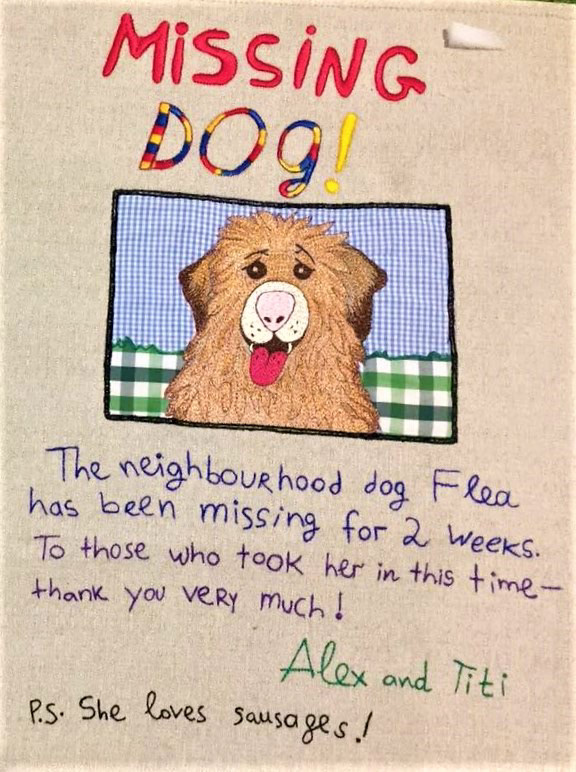 MiSSiNG
DOg!
The neighbourhood dog Flea
has been missing for 2 weeks.
To those who took her in this time—
thank you very much!
Alex and Titi
P.S. She loves sausages!